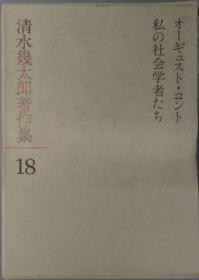 オーギュスト・コント
私の社会学者たち
清水幾太郎著作集
18